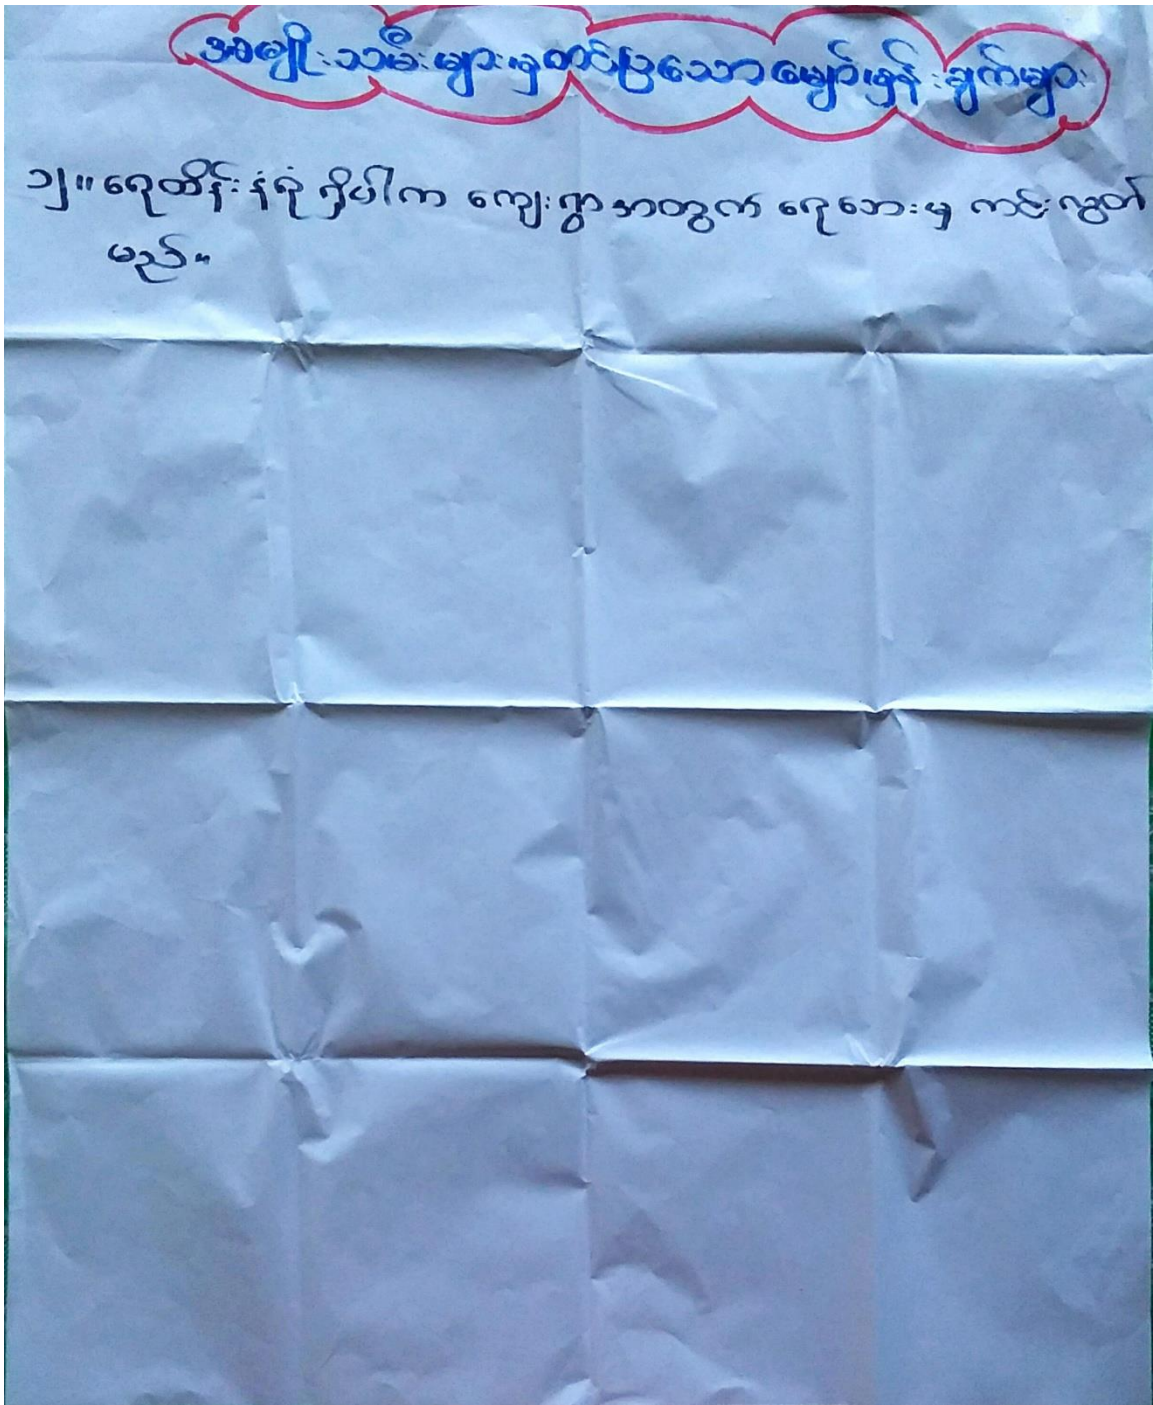 အမျိုးသမီးများမှတင်ပြသောမျှော်မှန်းချက်များ
၁၂။ ရေထိန်းနံရံ ရှိပါက ကျေးရွာအတွက် ရေဘေးမှ ကင်းလွတ်
မည်။